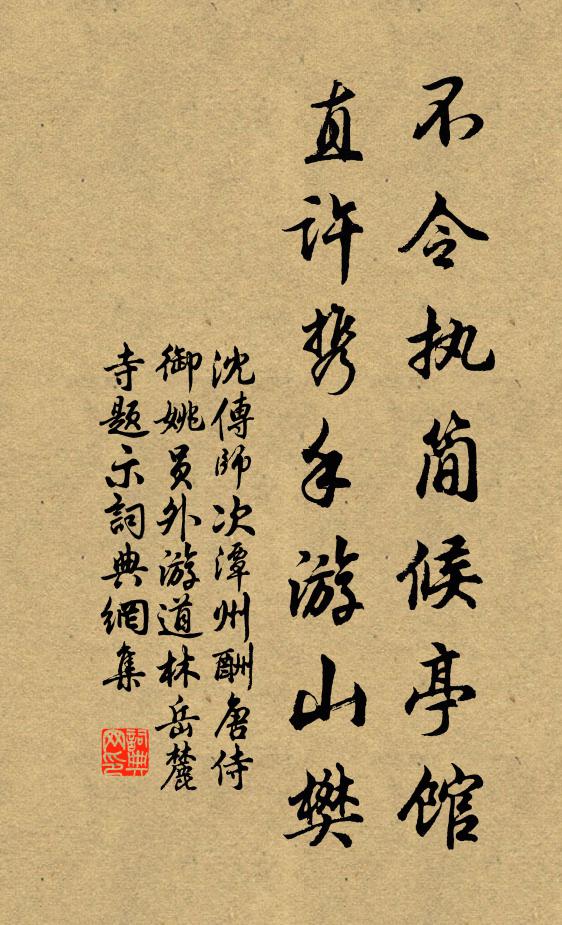 不令执简候亭馆
直许携手游山樊
沈傳師次潭州酬唐侍
御姚员外游道林岳麓
寺题示詞典網集
詞典網印